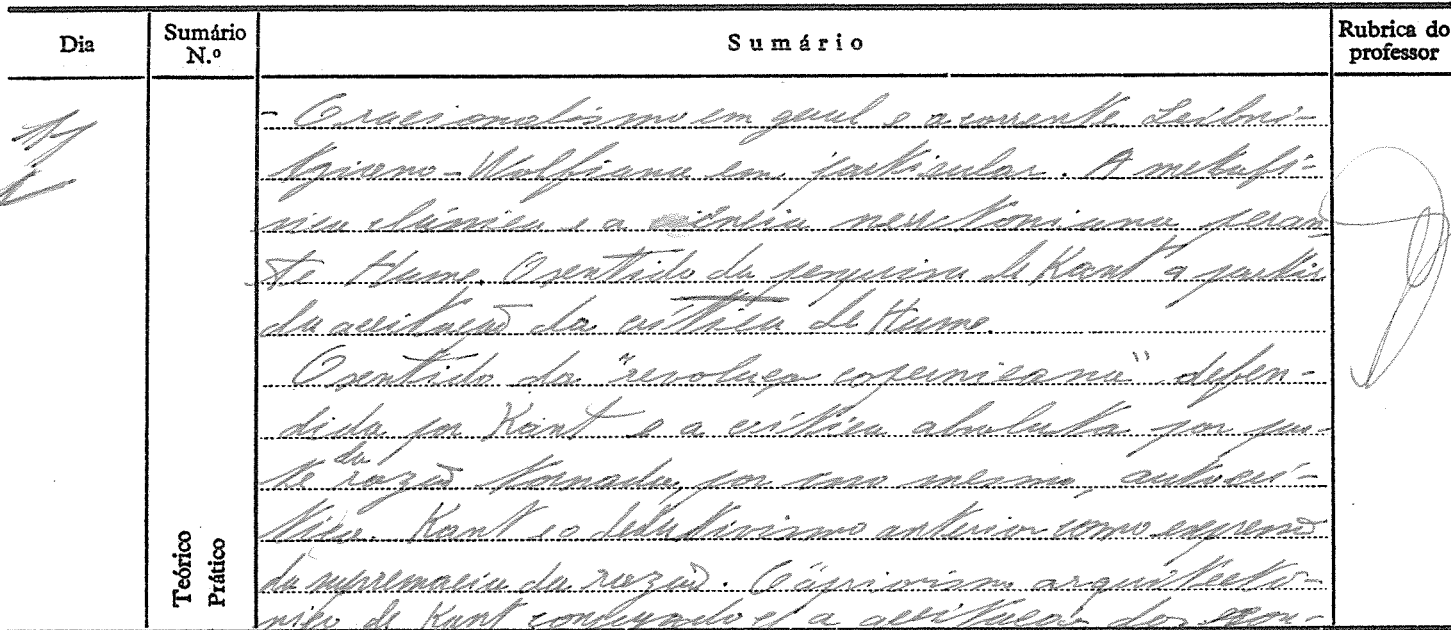 Dia
Sumário N.º
Sumário
Rubrica do professor
- O racionalismo em geral e a corrente Leibni-
tziano-Wolfiana em particular. A metafí-
sica clássica e a ciência newtoniana peran
te Hume. O sentido da pesquisa de Kant a partir
da aceitação da crítica de Hume.
O sentido da "revoluçao copernicana" defen-
dida por Kant e a crítica absoluta por par-
te da razão tornada, por isso mesmo, autocrí-
tica. Kant e o dedutivismo anterior como expressão
da supremacia da razão. O apriorismo arquitectó-
nico de Kant conjugado c/ a aceitação dos
Teórico
Prático